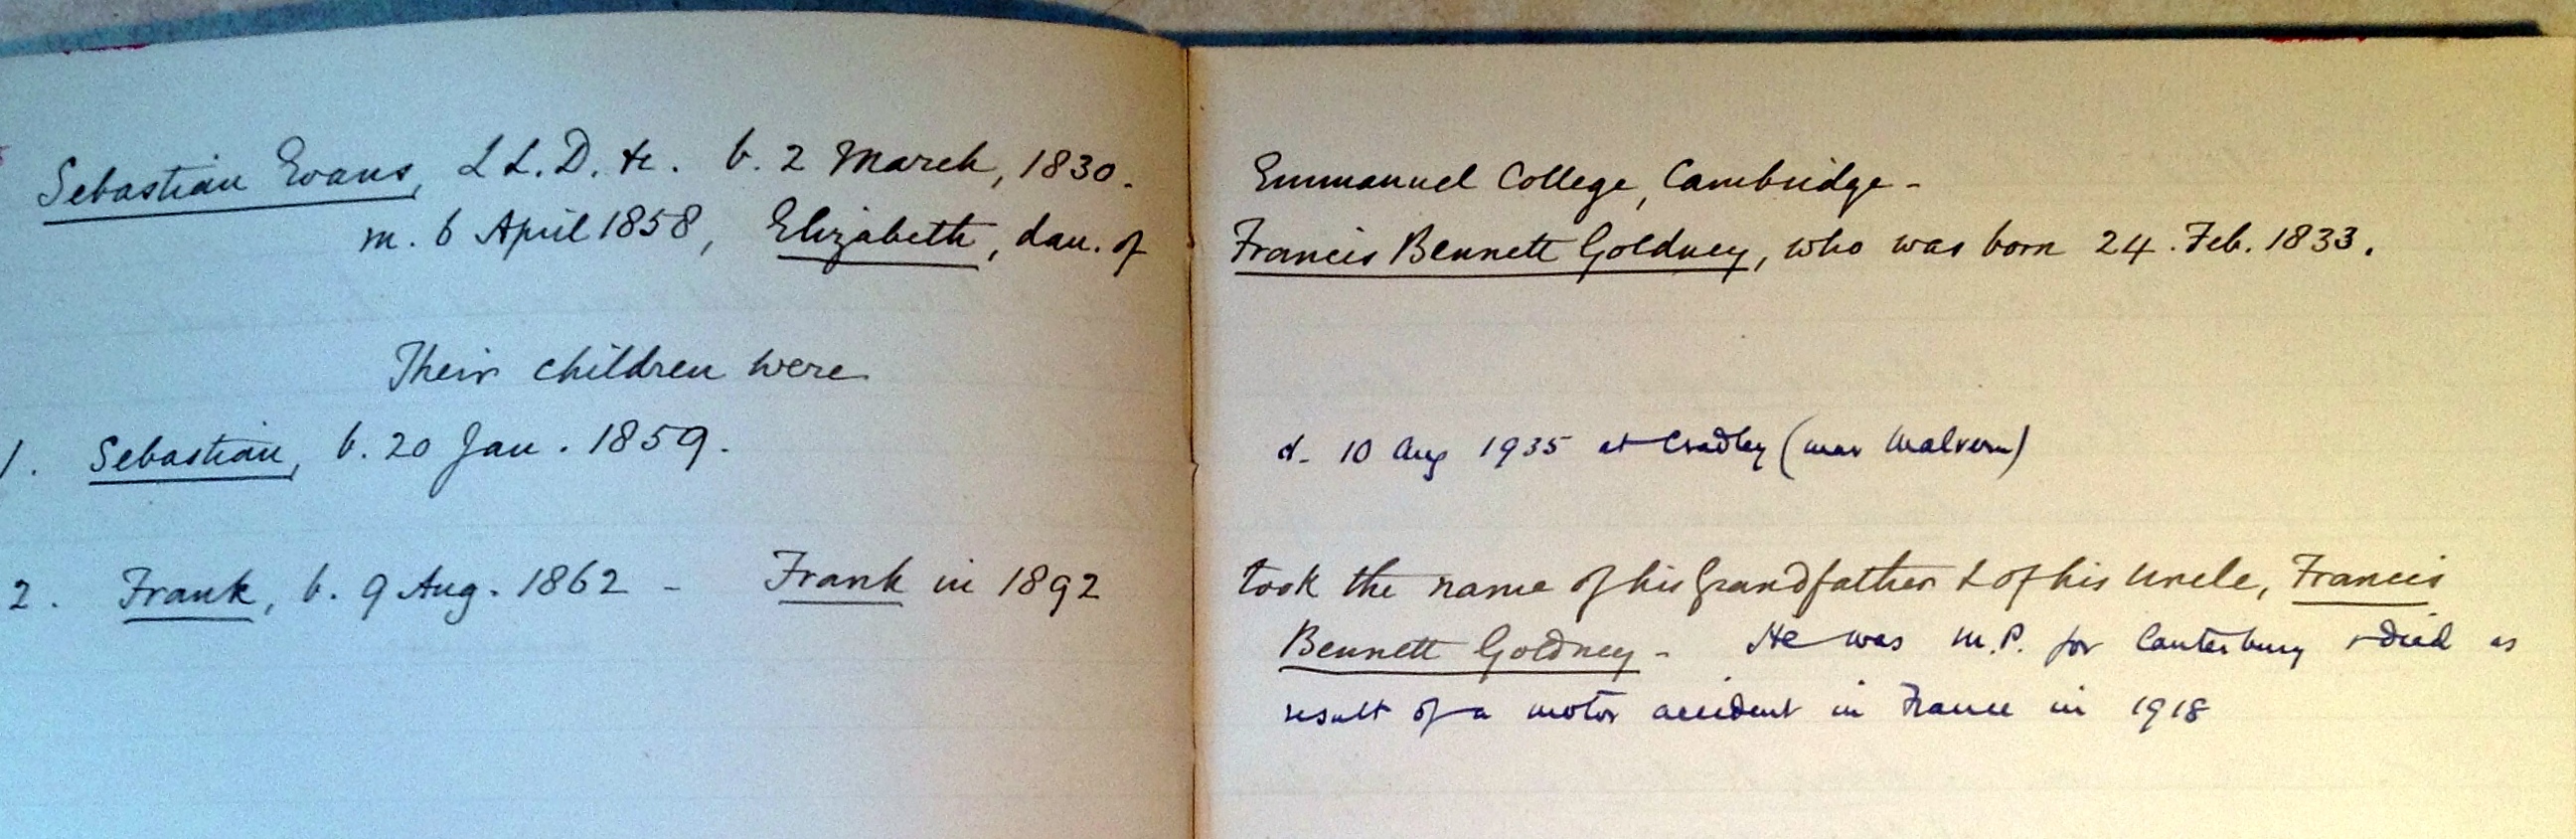 Sebastian Evans, LL.D. &c. b. 2 March, 1830. Emmanuel College, Cambridge -
m. 6 April 1858, Elizabeth, dau. of Francis Bennett Goldney, who was born 24. Feb. 1833.
Their children were
1. Sebastian, b. 20 Jan. 1859. d. 10 Aug 1935 at Cradley (near Malvern)
2. Frank, b. 9 Aug. 1862 - Frank in 1892 took the name of his Grandfather & of his Uncle, Francis
Bennett Goldney - He was M.P. for Canterbury & died as
result of a motor accident in France in 1918